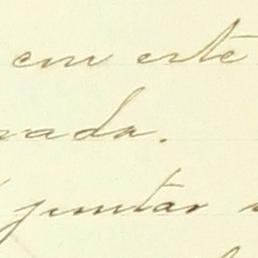 em este
rada.
juntar